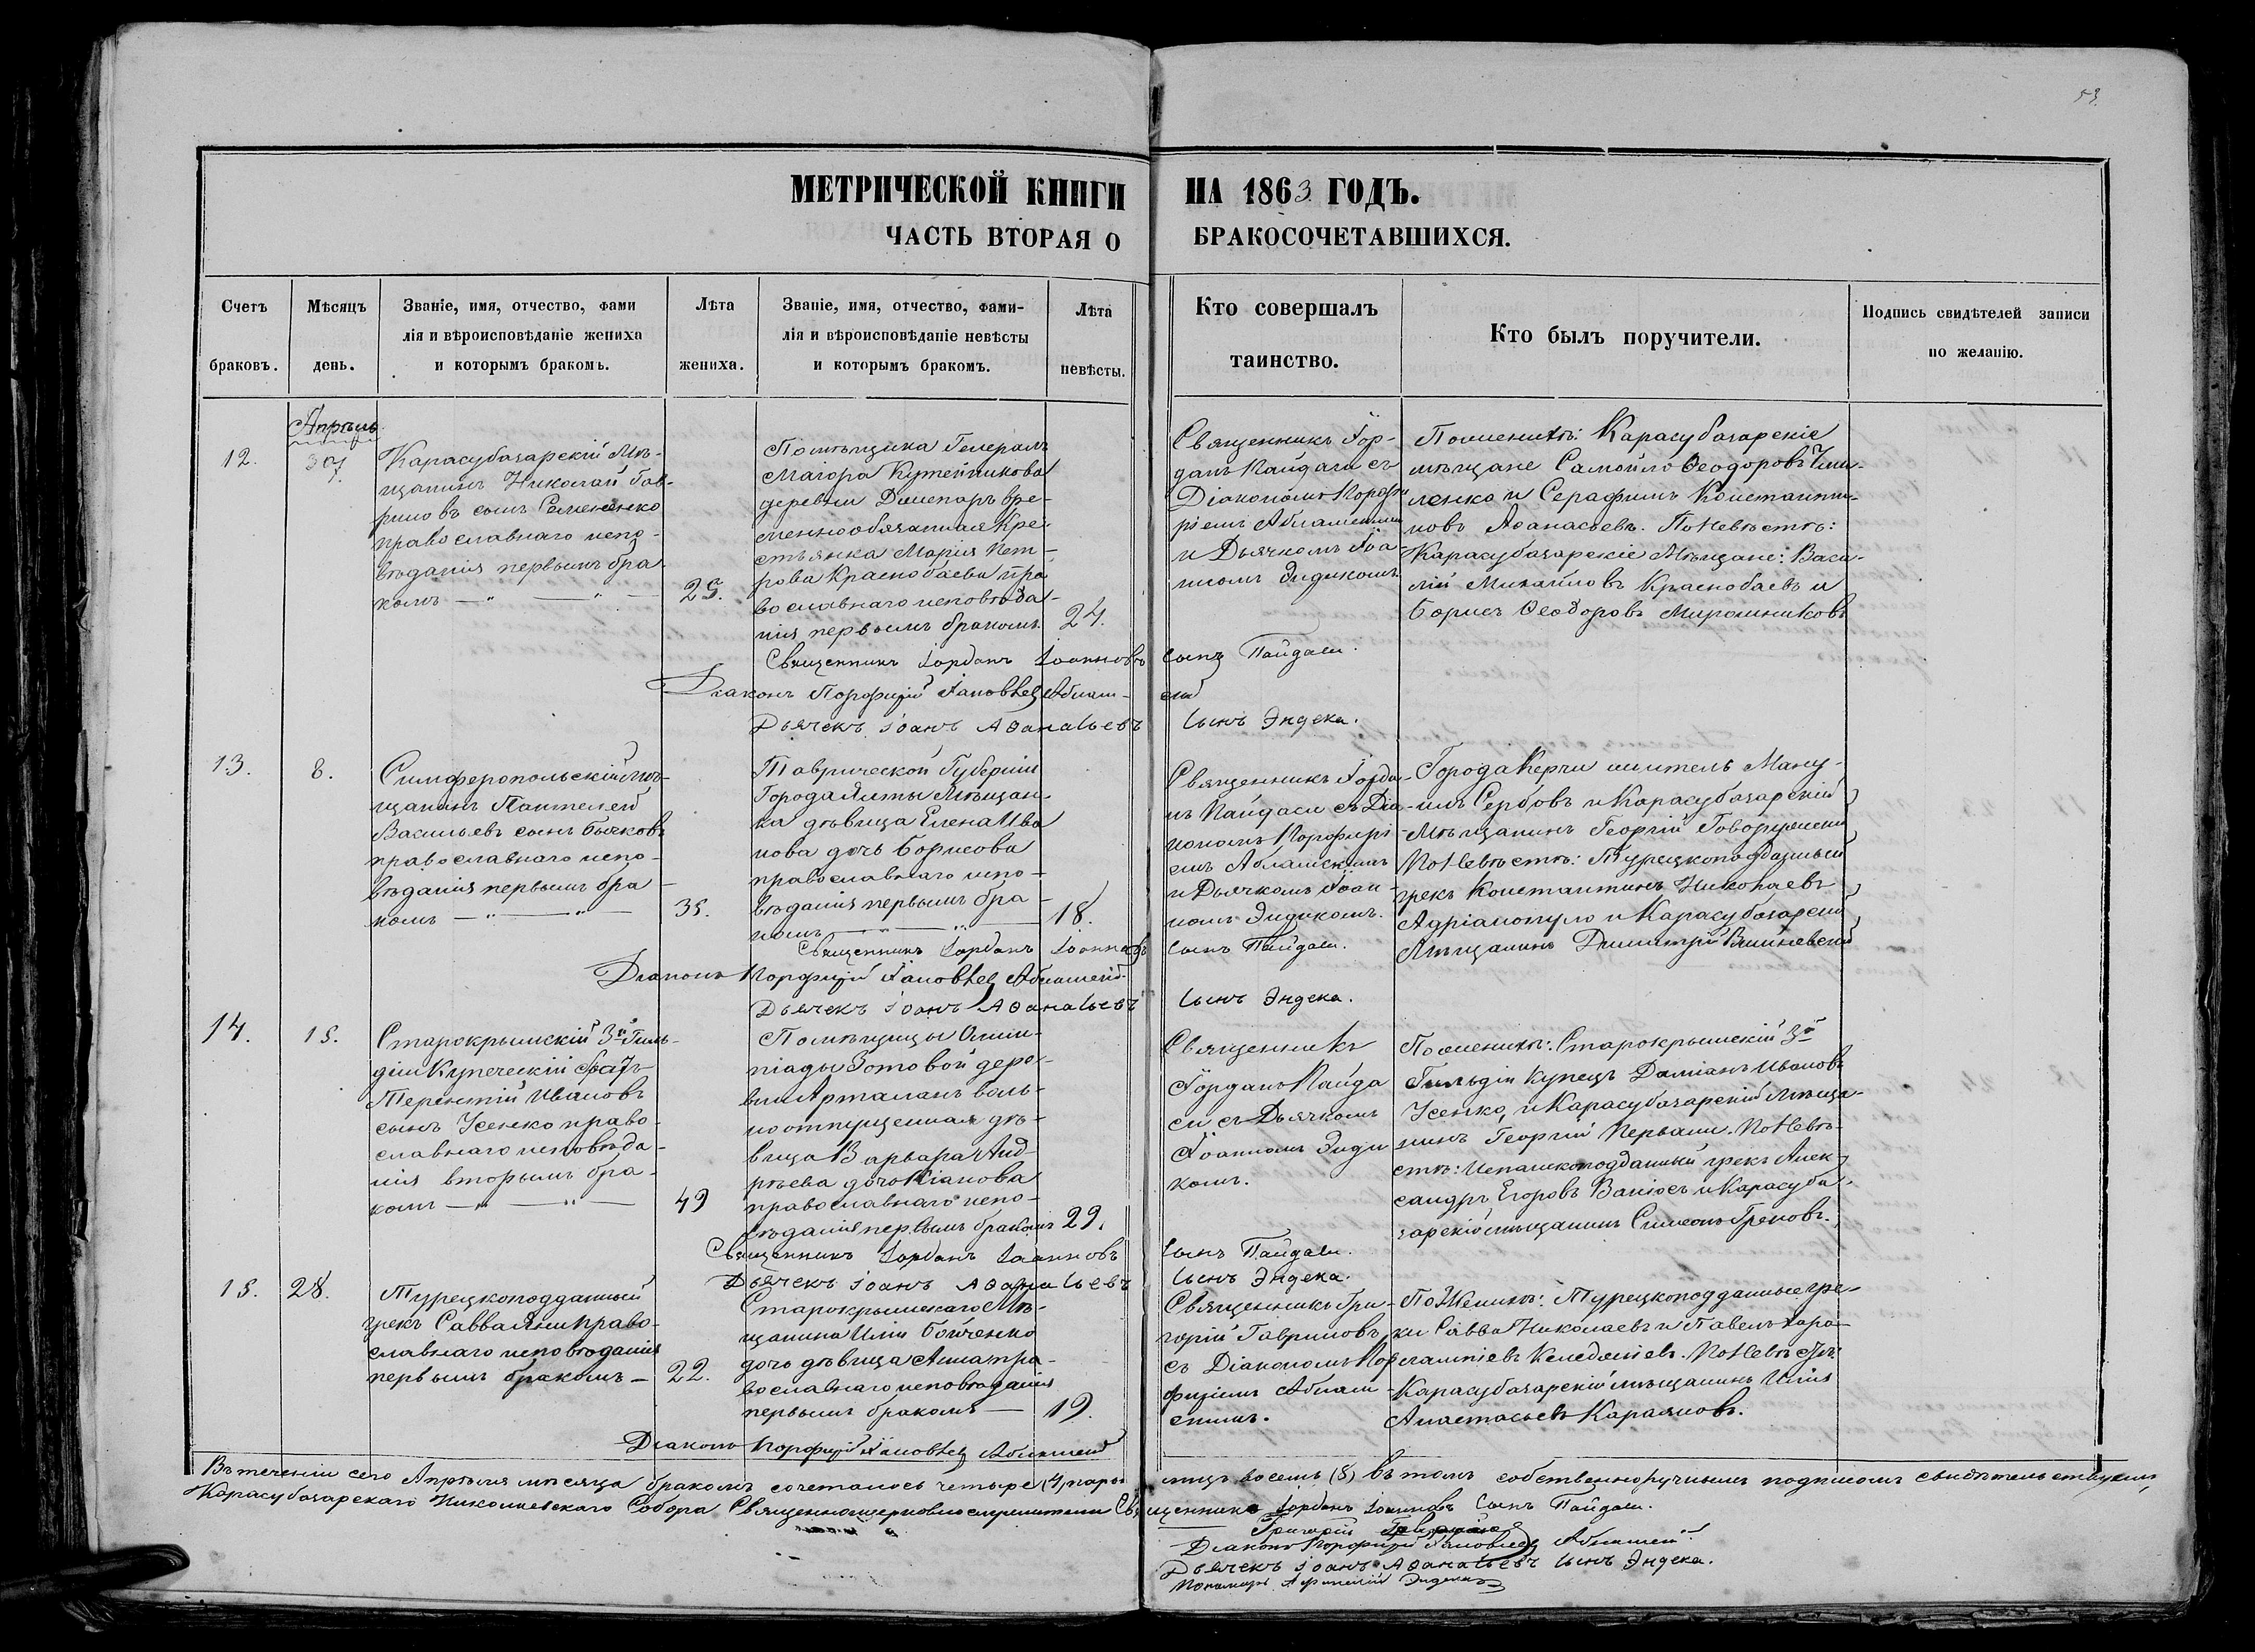 53.
МЕТРИЧЕСКОЙ КНИГИ НА 1863 ГОДЪ.
ЧАСТЬ ВТОРАЯ О БРАКОСОЧЕТАВШИХСЯ.
Счетъ
браковъ.
Мѣсяцъ
день.
Званіе, имя, отчество, фами
лія и вѣроисповѣданіе жениха
и которымъ бракомъ.
Лѣта
жениха.
Званіе, имя, отчество, фами-
лія и вѣроисповѣданіе невѣсты
и которымъ бракомъ.
Лѣта
невѣсты.
Кто совершалъ
таинство.
Кто былъ поручители.
Подпись свидѣтелей записи
по желанію.
Апрѣль
12.
Карасубазарскій Мѣ-
щанинъ Николай Гав-
риловъ сынъ Семененко
православнаго испо-
вѣданія первымъ бра
комъ
25.
Помѣщика Генералъ
Маіора Кутейникова
деревни
менно обязанная Кре-
стьянка Марія Пет-
рова Краснобаева пра
вославнаго исповѣда-
нія первымъ бракомъ.
24.
Священникъ Іор-
данъ Пайдаси съ
Діакономъ Порфи
ріемъ
и Дьячкомъ Іоа-
нномъ Эндикомъ.
По женихѣ: Карасубазарскіе
мѣщане Самойло Ѳеодоровъ
ленко и Серафимъ Константи-
новъ Аѳанасьевъ. По Невѣстѣ:
Карасубазарскіе Мѣщане: Васи-
лій Михайловъ Краснобаевъ и
Борисъ Ѳеодоровъ Мирошниковъ
Священникъ Іорданъ Іоанновъ сынъ Пайдаси.
Діаконъ Порфирій
Дьячекъ Іоанъ Аѳанасьевъ сынъ Эндека.
13.
8.
Симферопольскій мѣ-
щанинъ Пантелей
Васильевъ сынъ Бычковъ
православнаго испо-
вѣданія первымъ бра-
комъ
35.
Таврической Губерніи
Города Ялты Мѣщан-
ка дѣвица Елена Ива
нова дочь Борисова
православнаго испо-
вѣданія первымъ бра-
комъ
18.
Священникъ Іорда-
нъ Пайдаси съ Діа-
кономъ Порфирі-
емъ
и Дьячкомъ Іоан-
номъ Эндикомъ.
Города Керчи житель Ману-
илъ Сербовъ и Карасубазарскій
Мѣщанинъ Георгій
По Невѣстѣ: Турецкоподданный
грекъ Константинъ Николаевъ
Адріанопуло и Карасубазарскій
Мѣщанинъ Димитрій Вишневскій
Священникъ Іорданъ Іоанновъ сынъ Пайдаси.
Діаконъ Порфирій
Дьячекъ Іоанъ Аѳанасьевъ сынъ Эндека.
14.
15.
Старокрымскій 3й Гиль-
діи Купеческій братъ
Терентій Ивановъ
сынъ Усенко право-
славнаго исповѣда-
нія вторымъ бра-
комъ
49
Помѣщицы Олим-
піады Зотовой дере-
вни Арталанъ воль-
ноотпущенная дѣ-
вица Варвара Анд-
рѣева дочь Кіанова
православнаго испо-
вѣданія первымъ бракомъ
29.
Священникъ
Іорданъ Пайда
си съ Дьячкомъ
Іоанномъ Энди
комъ.
По женихѣ: Старокрымскій 3й
Гильдіи Купецъ Даміанъ Ивановъ
Усенко, и Карасубазарскій мѣща-
нинъ Георгій По Невѣ-
стѣ: подданный грекъ Алек-
сандръ Егоровъ и Карасуба-
зарскій мѣщанинъ Симеонъ Грековъ.
Священникъ Іорданъ Іоанновъ сынъ Пайдаси.
Дьячекъ Іоанъ Аѳанасьевъ сынъ Эндека.
15.
28.
Турецкоподданный
грекъ Савва Яни право-
славнаго исповѣданія
первымъ бракомъ
22.
Старокрымскаго Мѣ-
щанина Иліи Бойченко
дочь дѣвица Анна пра-
вославнаго исповѣданія
первымъ бракомъ
19.
Священникъ Гри-
горій Гавриловъ
съ Діакономъ Пор
фиріемъ
По Женихѣ: Турецкоподданные гре-
ки Савва Николаевъ и Павелъ Хара-
лампіевъ По Невѣстѣ:
Карасубазарскій мѣщанинъ Илія
Анастасьевъ Караяновъ.
Діаконъ Порфирій
Въ теченіи сего Апрѣля мѣсяца бракомъ сочеталось четыре (4) пары лицъ восемь (8) въ томъ собственноручнымъ подписомъ свидѣтельствуемъ,
Карасубазарскаго Николаевскаго Собора Священноцерковнослужители Священникъ Іорданъ Іоанновъ Сынъ Пайдаси.
Григорій
Діаконъ Порфирій
Дьячекъ Іоанъ Аѳанасьевъ сынъ Эндека.
Пономарь